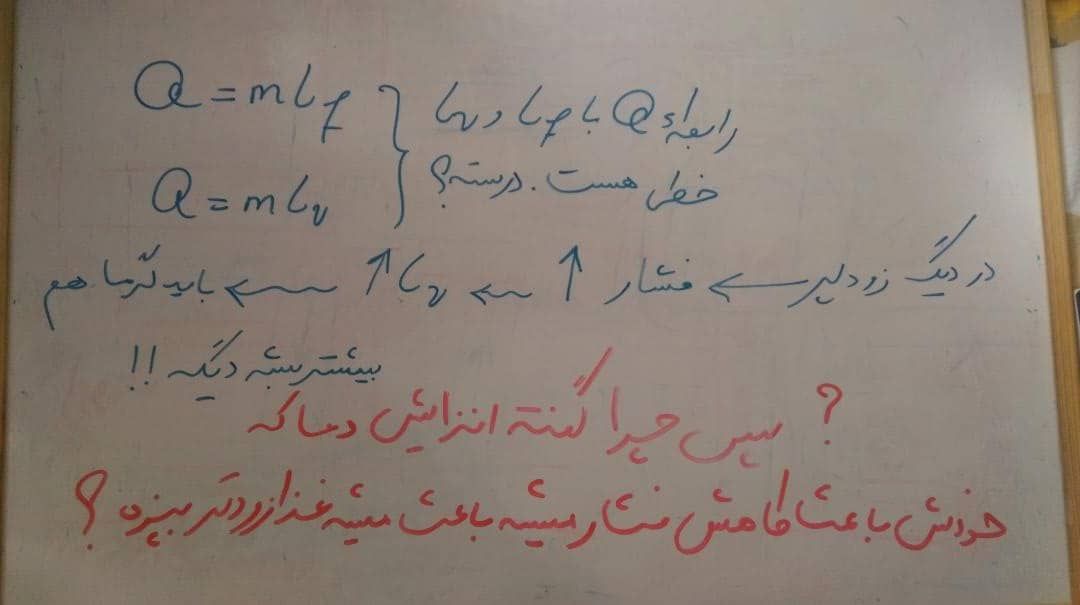 Q = mLf } رابطه‌ی Q با Lf و Lv
Q = mLv } خطی هست. درسته؟
در دیگ زودپز ← فشار ↑ ← Lv ↑ ← باید گرما هم
بیشتر بشه دیگه !!
؟ پس چرا گفته افزایش دما که
خودش باعث کاهش فشار میشه باعث میشه غذا زودتر بپزه ؟